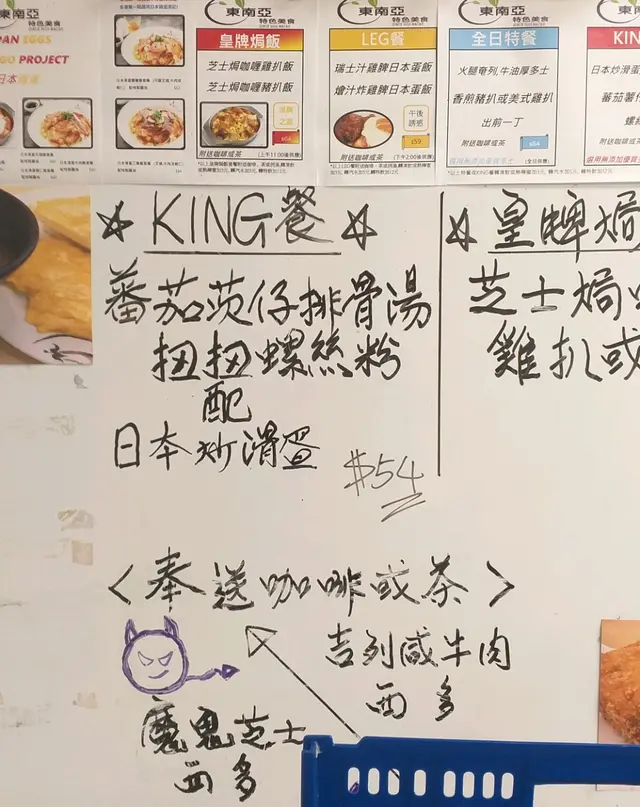 東南亞
特色美食
東南亞
特色美食
東南亞
特色美食
PAN EGGS
GO PROJECT
日本
皇牌焗飯
芝士焗咖喱雞扒飯
芝士焗咖喱豬扒飯
$64
附送咖啡或茶
(上午11:00後供應)
LEG餐
瑞士汁雞髀日本蛋飯
燴汁炸雞髀日本蛋飯
午後
誘惑
$59
附送咖啡或茶
(下午2:00後供應)
全日特餐
火腿奄列,牛油厚多士
香煎豬扒或美式雞扒
出前一丁
$64
附送咖啡或茶
(全日供應)
KIN
日本炒滑蛋
蕃茄薯仔
螺絲
附送咖啡或茶
KING餐
蕃茄茨仔排骨湯
扭扭螺絲粉
配
日本炒滑蛋
$54
皇牌焗
芝士焗
雞扒或
<奉送咖啡或茶>
吉列咸牛肉
西多
魔鬼芝士
西多